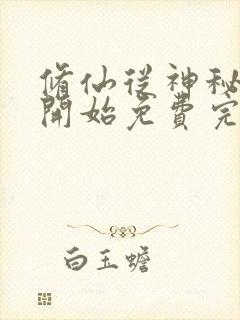 脩仙從神秘
開始免費完
白玉蟾